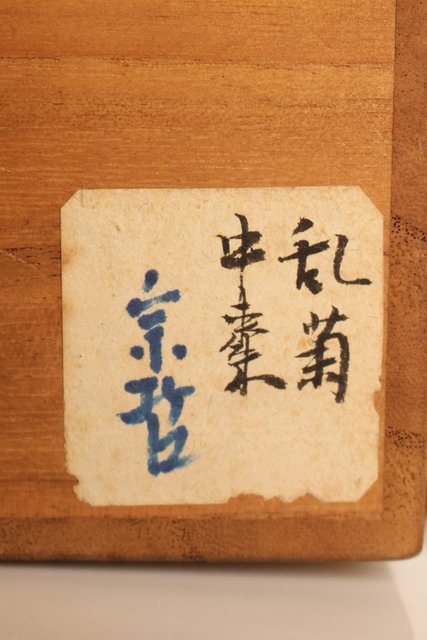 乱菊
中棗
宗哲